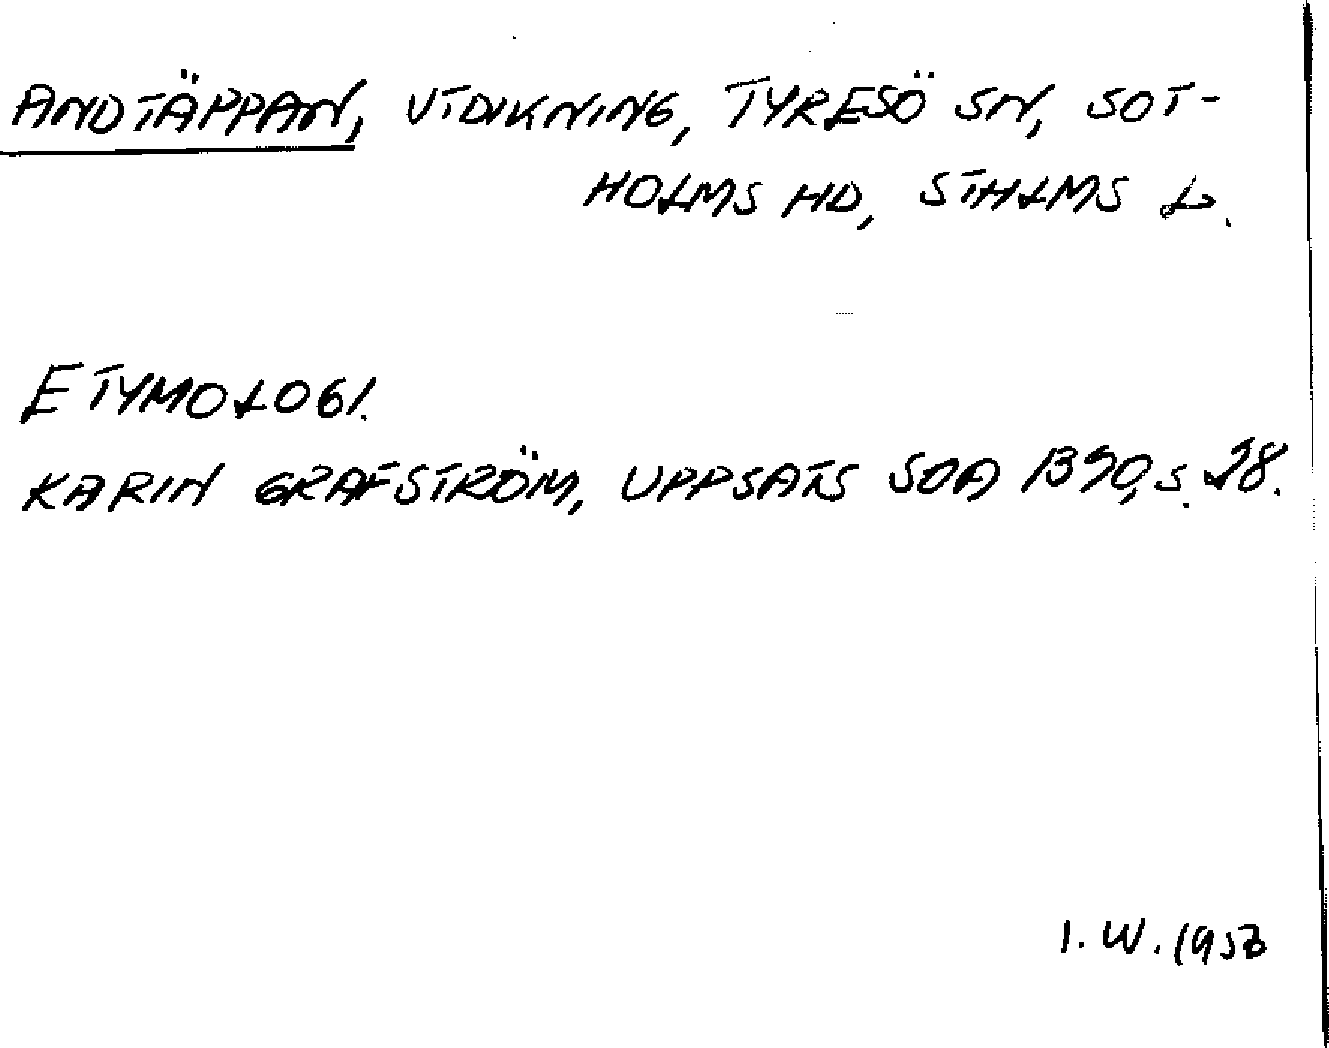 ANDTÄPPAN, UTDIKNING, TYRESÖ SN, SOT-
HOLMS HD, STHLMS L.
ETYMOLOGI.
KARIN GRAFSTRÖM, UPPSATS SOA 1390, S. 28.
I. W. 1953